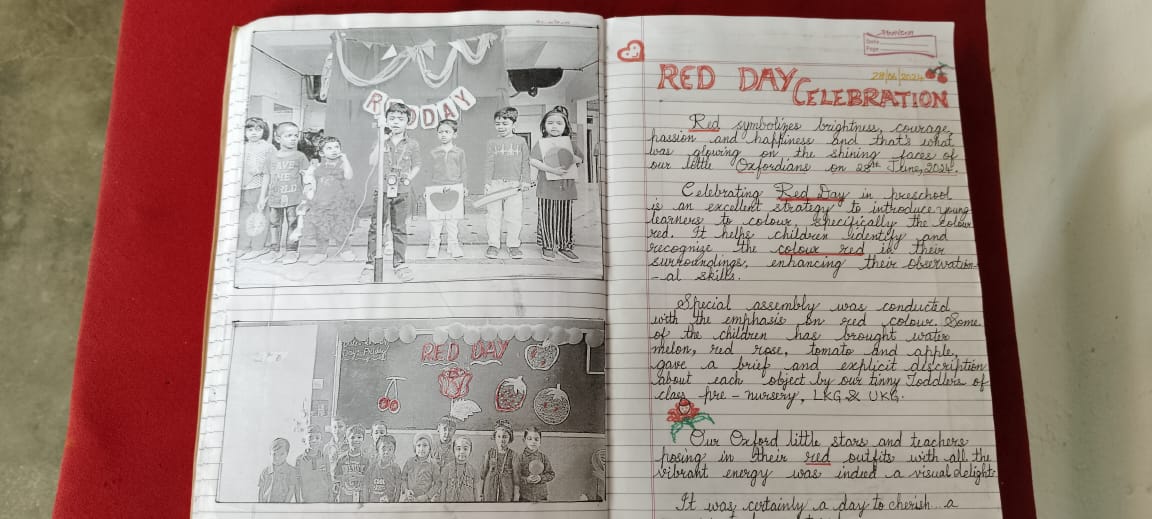 RED DAY
SAVE
THE
WORLD
RED DAY
Date
Page
28/06/2024
RED DAY CELEBRATION
Red symbolizes brightness, courage,
passion and happiness and that's what
was glowing on the shining faces of
our little Oxfordians on 28th June, 2024.
Celebrating Red Day in preschool
is an excellent strategy to introduce young
learners to colour, specifically the colour
red. It helps children identify and
recognize the colour red in their
surroundings, enhancing their observation-
-al skills.
Special assembly was conducted
with the emphasis on red colour. Some
of the children has brought water
melon, red rose, tomato and apple,
gave a brief and explicit description
about each object by our tinny Toddlers of
class pre-nursery, LKG & UKG.
Our Oxford little stars and teachers
posing in their red outfits with all the
vibrant energy was indeed a visual delight.
It was certainly a day to cherish...a